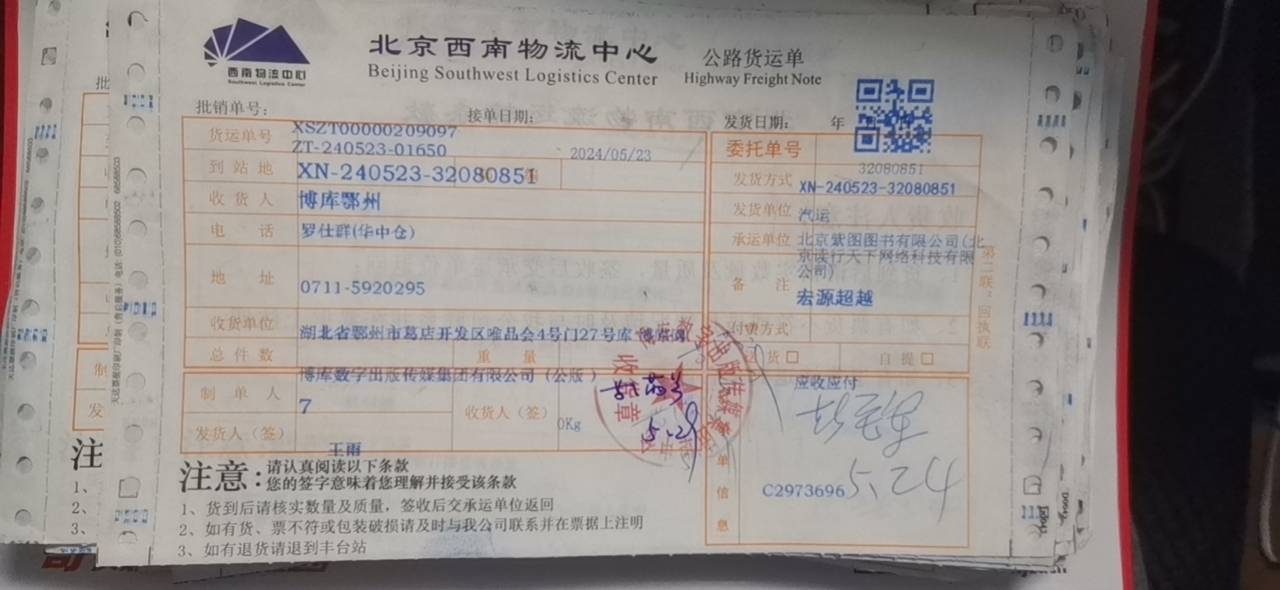 西南物流中心
Southwest Logistics Center
北京西南物流中心
Beijing Southwest Logistics Center
公路货运单
Highway Freight Note
批销单号:
接单日期:
发货日期: 年
货运单号 XSZT00000209097
ZT-240523-01650 2024/05/23
委托单号
32080851
到站地 XN-240523-32080851
发货方式 XN-240523-32080851
收货人 博库鄂州
发货单位 汽运
电话 罗仕群(华中仓)
承运单位 北京紫图图书有限公司(北
京读行天下网络科技有限
公司)
地址 0711-5920295
备注 宏源超越
收货单位 湖北省鄂州市葛店开发区唯品会4号门27号库
付费方式
总件数 重量
送货 自提
博库数字出版传媒集团有限公司(公版)
应收应付
制单人 7
收货人(签) 0Kg
收货章
5.29
发货人(签) 王雨
单信息
C2973696 5.24
第二联:回执联
注意:
请认真阅读以下条款
您的签字意味着您理解并接受该条款
1、货到后请核实数量及质量,签收后交承运单位返回
2、如有货、票不符或包装破损请及时与我公司联系并在票据上注明
3、如有退货请退到丰台站
批
制
发
注
1、
2、
3、